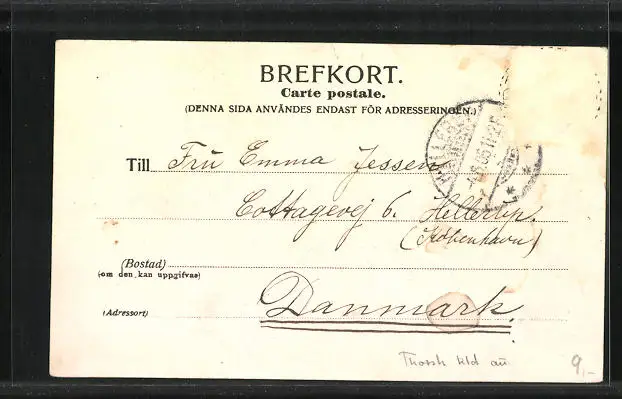 BREFKORT.
Carte postale.
(DENNA SIDA ANVÄNDES ENDAST FÖR ADRESSERINGEN.)
Till Fru Emma Jessen
Cottagevej 6. Hellerup.
(København)
(Bostad)
(om den kan uppgifvas)
(Adressort) Danmark.
9,-